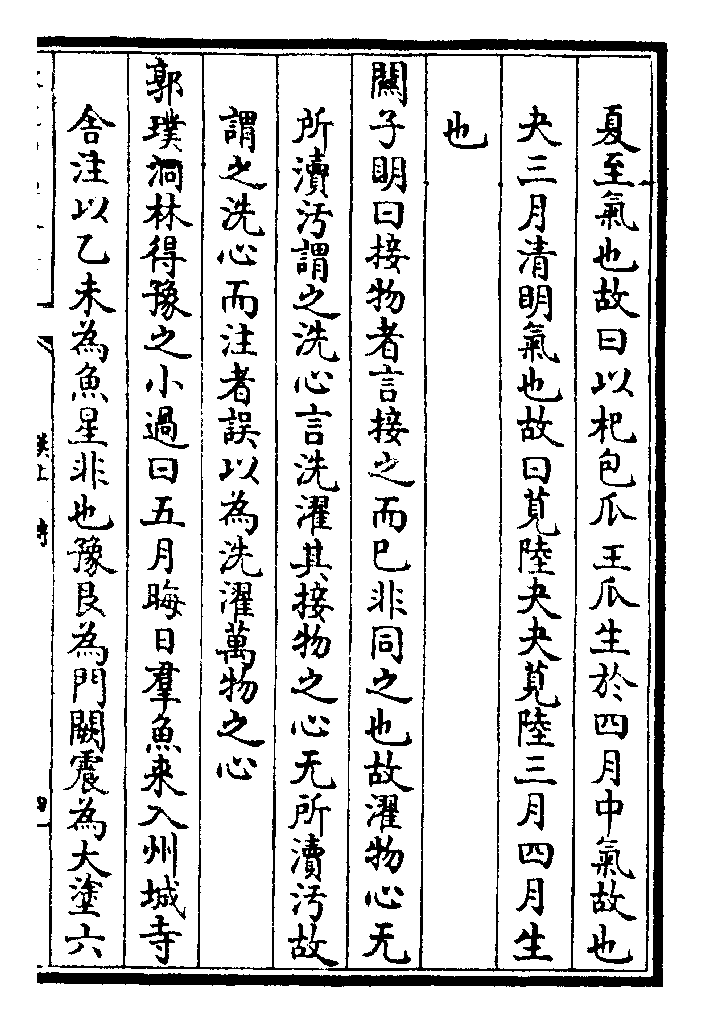 夏至氣也故曰以杞包瓜王瓜生於四月中氣故也
夬三月清明氣也故曰莧陸夬夬莧陸三月四月生
也
關子明曰接物者言接之而已非同之也故濯物心无
所瀆汚謂之洗心言洗濯其接物之心无所瀆汚故
謂之洗心而注者誤以為洗濯萬物之心
郭璞洞林得豫之小過曰五月晦日羣魚來入州城寺
舍注以乙未為魚星非也豫艮為門闕震為大塗六